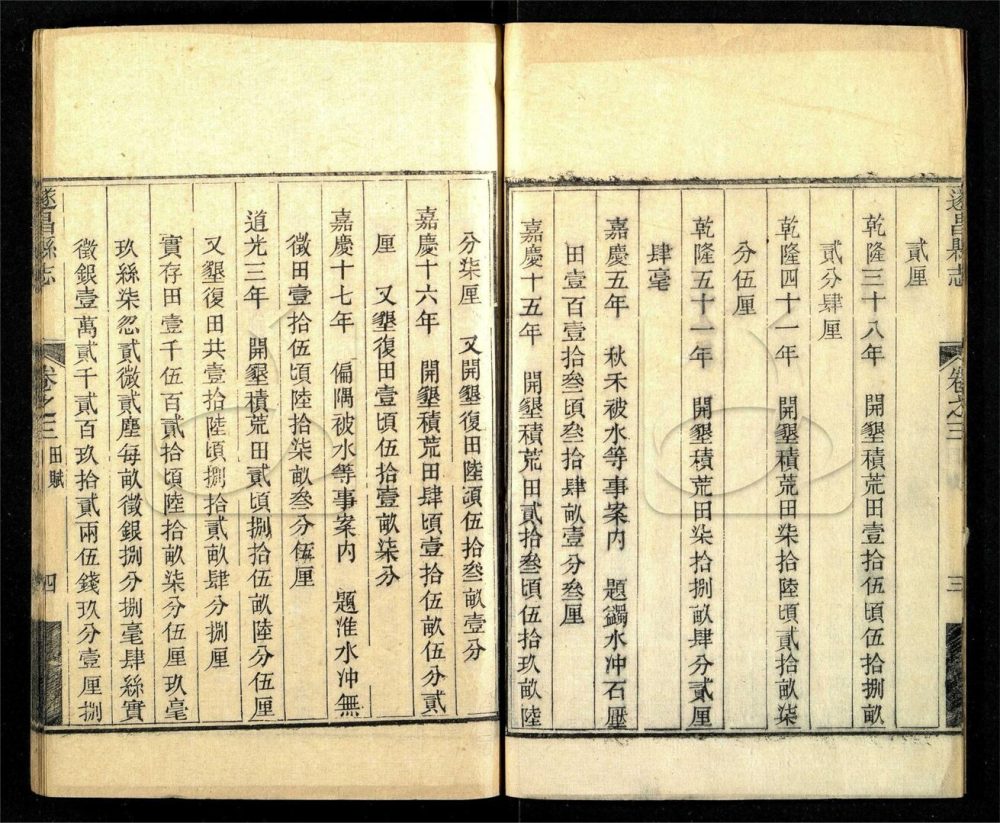 遂昌縣志
卷之三
三
貳厘
乾隆三十八年　開墾積荒田壹拾伍頃伍拾捌畝
貳分肆厘
乾隆四十一年　開墾積荒田柒拾陸頃貳拾畝柒
分伍厘
乾隆五十一年　開墾積荒田柒拾捌畝肆分貳厘
肆毫
嘉慶五年　秋禾被水等事案內　題蠲水沖石壓
田壹百壹拾叁頃叁拾肆畝壹分叁厘
嘉慶十五年　開墾積荒田貳拾叁頃伍拾玖畝陸
分柒厘　又開墾復田陸頃伍拾叁畝壹分
嘉慶十六年　開墾積荒田肆頃壹拾伍畝伍分貳
厘　又墾復田壹頃伍拾壹畝柒分
嘉慶十七年　偏隅被水等事案內　題准水沖無
徵田壹拾伍頃陸拾柒畝叁分伍厘
道光三年　開墾積荒田貳頃捌拾伍畝陸分伍厘
又墾復田共壹拾陸頃捌拾貳畝肆分捌厘
實存田壹千伍百貳拾頃陸拾畝柒分伍厘玖毫
玖絲柒忽貳微貳塵每畝徵銀捌分捌毫肆絲實
徵銀壹萬貳千貳百玖拾貳兩伍錢玖分壹厘捌
遂昌縣志
卷之三
田賦
四